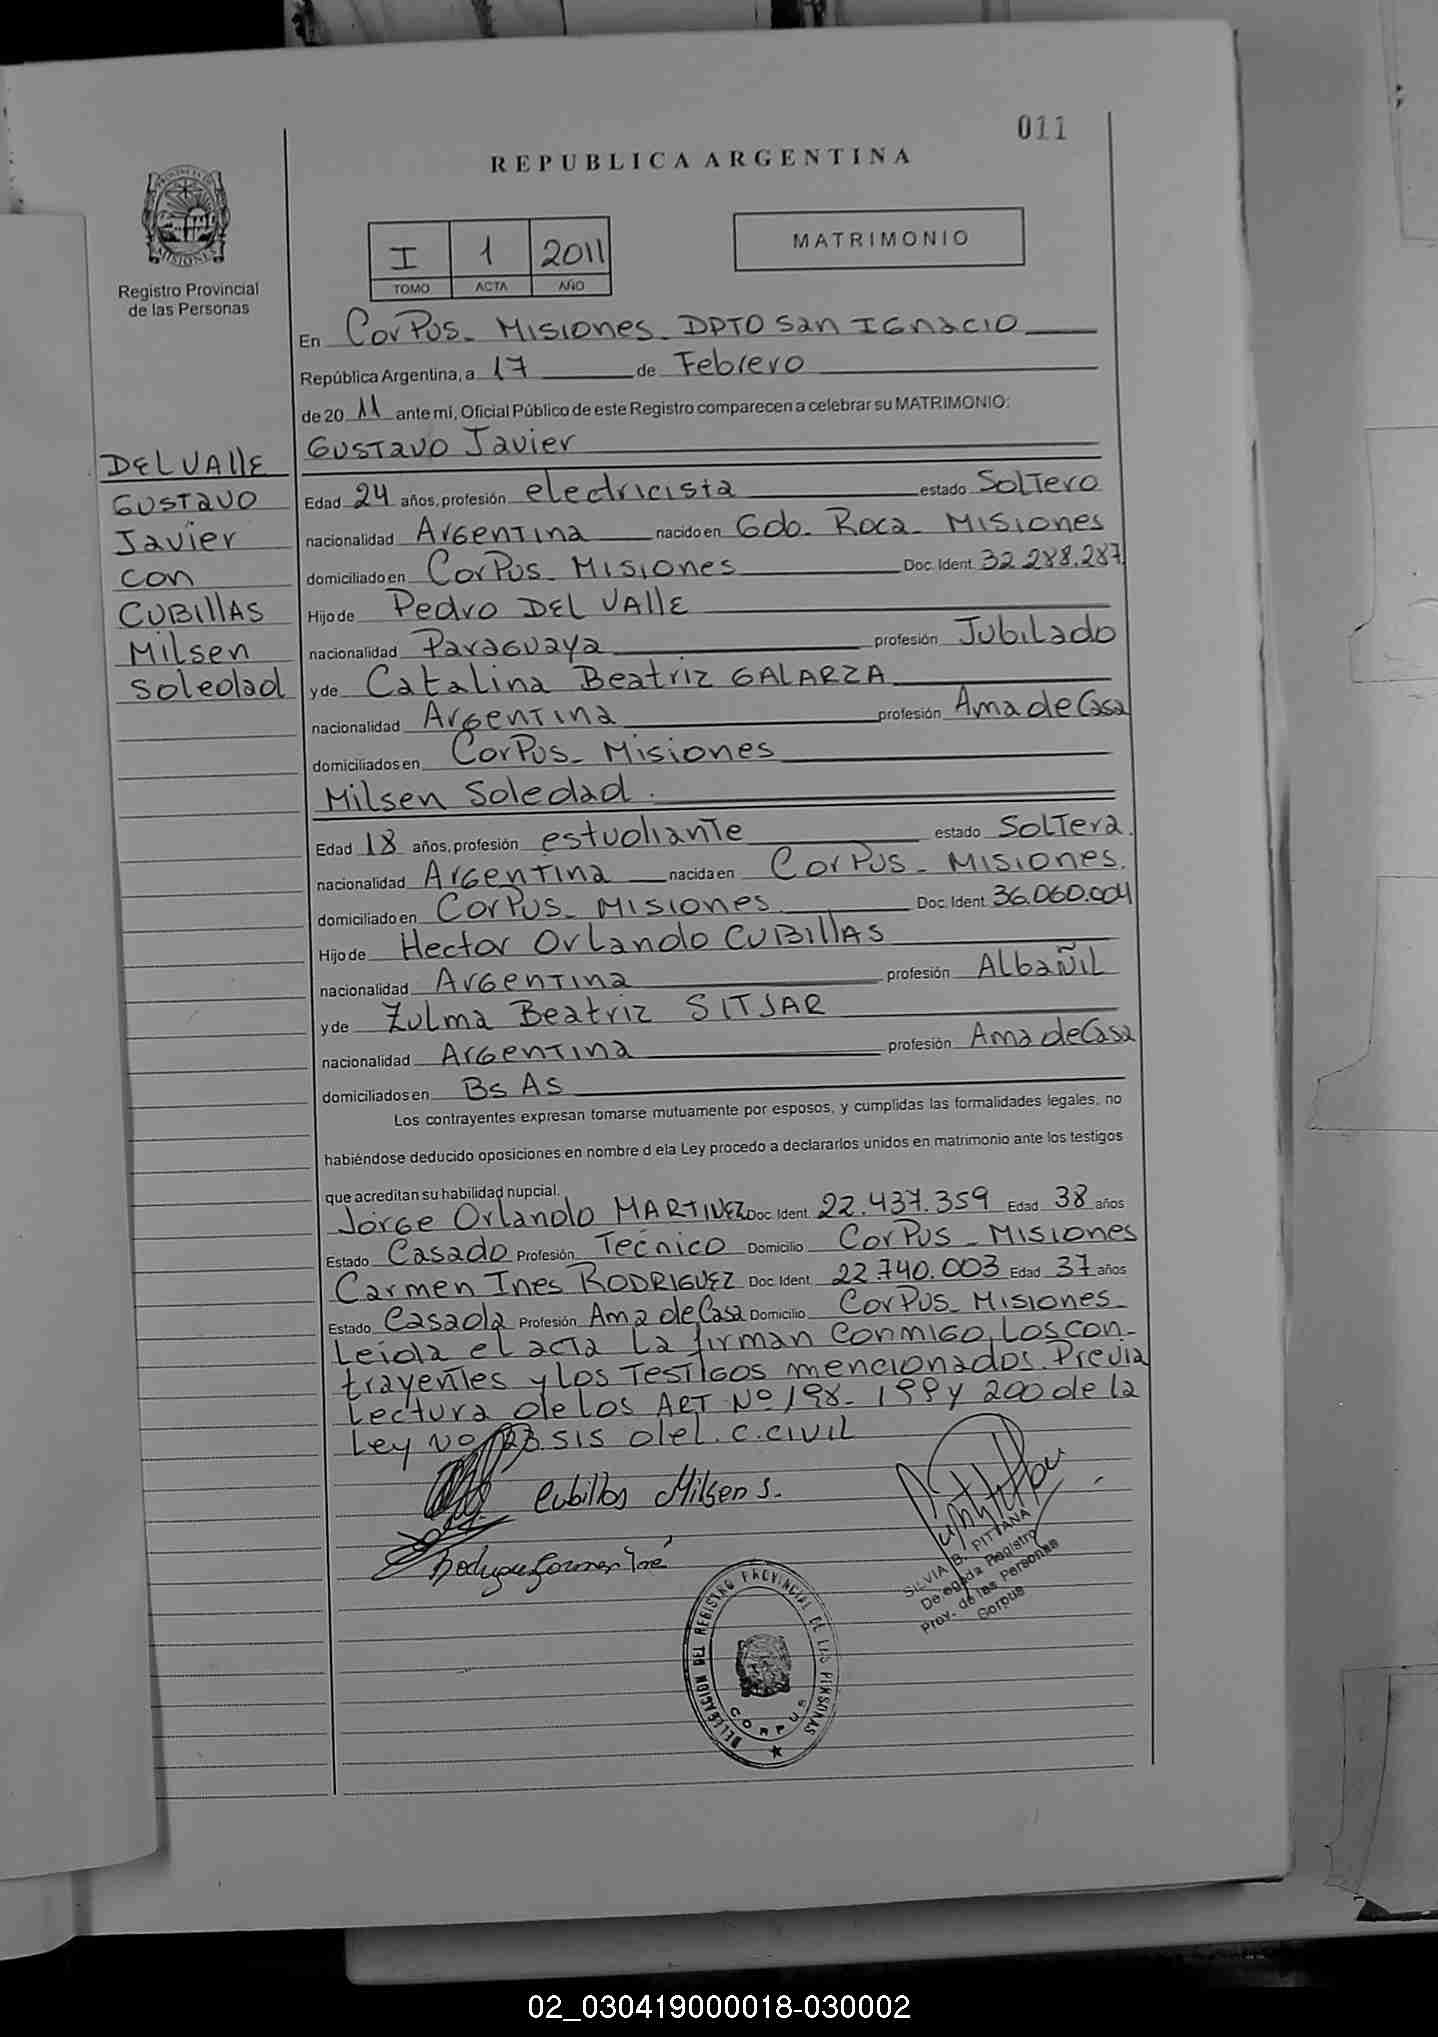 011
REPUBLICA ARGENTINA
PROVINCIA DE
MISIONES
Registro Provincial
de las Personas
I 1 2011
TOMO ACTA AÑO
MATRIMONIO
En Corpus - Misiones - DPTO San Ignacio
República Argentina, a 17 de Febrero
de 20 11 ante mí, Oficial Público de este Registro comparecen a celebrar su MATRIMONIO:
DEL VALLE
Gustavo
Javier
con
CUBILLAS
Milsen
Soledad
Gustavo Javier
Edad 24 años, profesión electricista estado Soltero
nacionalidad Argentina nacido en Gdo. Roca - Misiones
domiciliado en Corpus - Misiones Doc. Ident. 32.288.287
Hijo de Pedro DEL VALLE
nacionalidad Paraguaya profesión Jubilado
y de Catalina Beatriz GALARZA
nacionalidad Argentina profesión Ama de Casa
domiciliados en Corpus - Misiones
Milsen Soledad.
Edad 18 años, profesión estudiante estado Soltera.
nacionalidad Argentina nacida en Corpus - Misiones.
domiciliado en Corpus - Misiones Doc. Ident. 36.060.004
Hijo de Hector Orlando CUBILLAS
nacionalidad Argentina profesión Albañil
y de Zulma Beatriz SITJAR
nacionalidad Argentina profesión Ama de Casa
domiciliados en Bs As
Los contrayentes expresan tomarse mutuamente por esposos, y cumplidas las formalidades legales, no
habiéndose deducido oposiciones en nombre d ela Ley procedo a declararlos unidos en matrimonio ante los testigos
que acreditan su habilidad nupcial.
Jorge Orlando MARTINEZ Doc. Ident. 22.437.359 Edad 38 años
Estado Casado Profesión Tecnico Domicilio Corpus - Misiones
Carmen Ines RODRIGUEZ Doc. Ident. 22.740.003 Edad 37 años
Estado Casada Profesión Ama de Casa Domicilio Corpus - Misiones -
Leida el acta la firman conmigo, los con-
trayentes y los Testigos mencionados. Previa
Lectura de los ART Nº 198 - 199 y 200 de la
Ley Nº 23.515 del C. Civil
Cubillas Milsen S.
SILVIA B. PITTANA
Delegada Registro
Prov. de las Personas
Corpus
DELEGACION DEL REGISTRO PROVINCIAL DE LAS PERSONAS
CORPUS
02_030419000018-030002